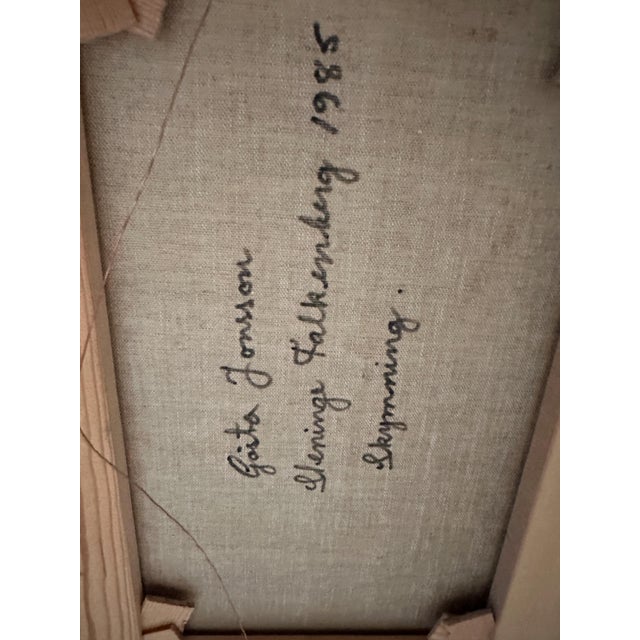 Gösta Jonsson.
Steninge Falkenberg 1985
Skymning.